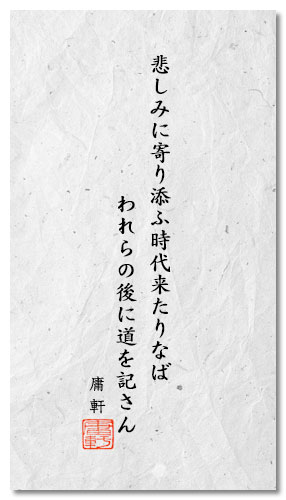 悲しみに寄り添ふ時代来たりなば
われらの後に道を記さん
庸軒